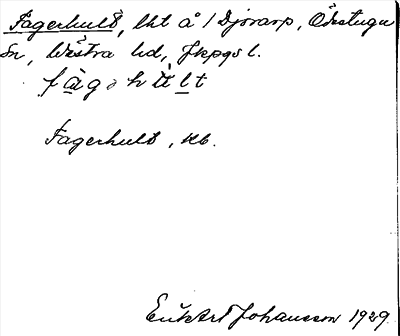 Fagerhult, lht å 1 Djorarp, Öde­stugu
sn, Västra hd, Jkpgs l.
fàgəhúlt
Fagerhult, kb.
Erik Art Johansson 1929.